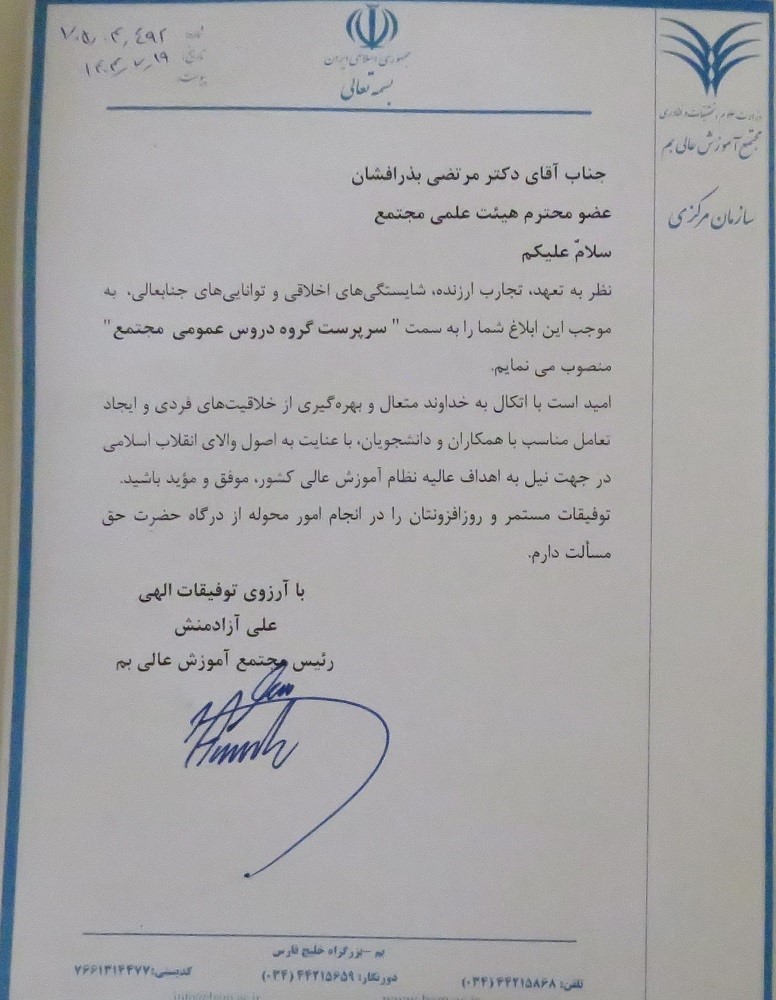 جمهوری اسلامی ایران
بسمه تعالی
شماره:
تاریخ: ۱۴۰۴٫۷٫۱۹
پیوست:
وزارت علوم، تحقیقات و فناوری
مجتمع آموزش عالی بم
سازمان مرکزی
جناب آقای دکتر مرتضی بذرافشان
عضو محترم هیئت علمی مجتمع
سلامٌ علیکم
نظر به تعهد، تجارب ارزنده، شایستگی‌های اخلاقی و توانایی‌های جنابعالی، به
موجب این ابلاغ شما را به سمت " سرپرست گروه دروس عمومی مجتمع"
منصوب می نمایم.
امید است با اتکال به خداوند متعال و بهره‌گیری از خلاقیت‌های فردی و ایجاد
تعامل مناسب با همکاران و دانشجویان، با عنایت به اصول والای انقلاب اسلامی
در جهت نیل به اهداف عالیه نظام آموزش عالی کشور، موفق و مؤید باشید.
توفیقات مستمر و روزافزونتان را در انجام امور محوله از درگاه حضرت حق
مسألت دارم.
با آرزوی توفیقات الهی
علی آزادمنش
رئیس مجتمع آموزش عالی بم
بم - بزرگراه خلیج فارس
تلفن: ۴۴۲۱۵۸۶۸ (۰۳۴) دورنگار: ۴۴۲۱۵۶۵۹ (۰۳۴) کدپستی: ۷۶۶۱۳۱۴۴۷۷